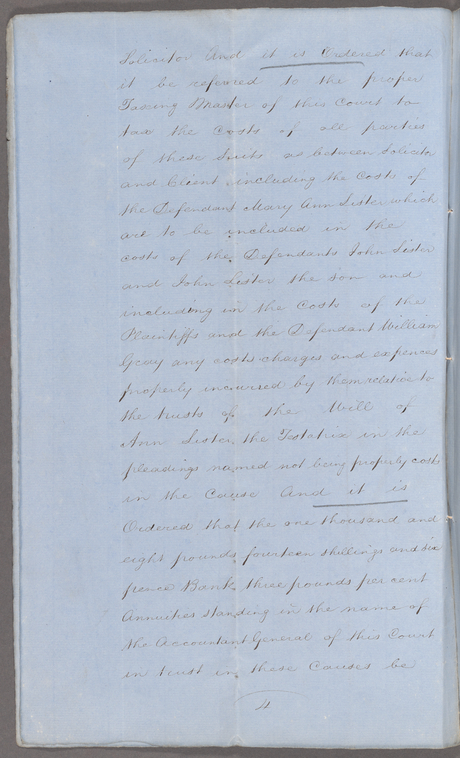 Solicitor And it is Ordered that
it be referred to the proper
Taxing Master of this Court to
tax the Costs of all parties
of these Suits as between Solicitor
and Client including the Costs of
the Defendant Mary Ann Lister which
are to be included in the
costs of the Defendants John Lister
and John Lister the Son and
including in the Costs of the
Plaintiffs and the Defendant William
Gray any costs charges and expences
properly incurred by them relative to
the trusts of the Will of
Ann Lister the Testatrix in the
pleadings named not being properly costs
in the Cause And it is
Ordered that the one thousand and
eight pounds fourteen shillings and six
pence Bank three pounds per cent
Annuities standing in the name of
the Accountant General of this Court
in trust in these Causes be
4